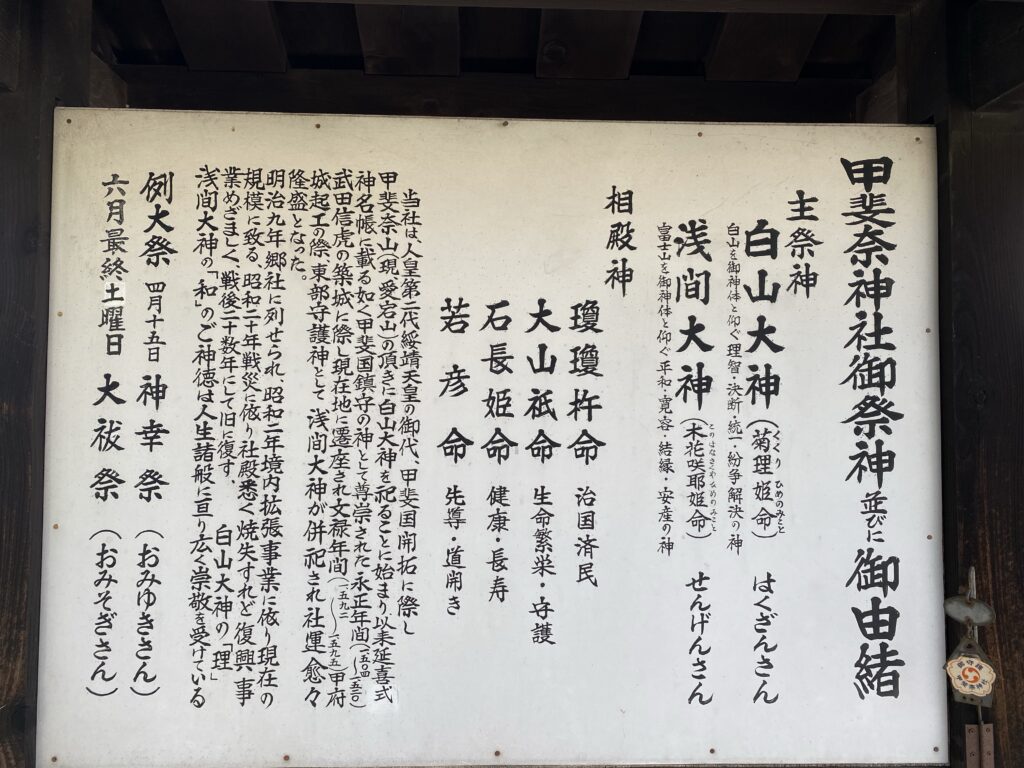 甲斐奈神社御祭神並びに御由緒
主祭神
白山大神(菊理姫命) はくざんさん
くくりひめのみこと
白山を御神体と仰ぐ理智・決断・統一・紛争解決の神
浅間大神(木花咲耶姫命) せんげんさん
このはなさくやひめのみこと
富士山を御神体と仰ぐ平和・寛容・結縁・安産の神
相殿神
瓊瓊杵命 治国済民
大山祇命 生命繁栄・守護
石長姫命 健康・長寿
若彦命 先導・道開き
当社は、人皇第二代綏靖天皇の御代、甲斐国開拓に際し
甲斐奈山(現、愛宕山)の頂きに白山大神を祀ることに始まり以来延喜式
神名帳に載る如く甲斐国鎮守の神として尊崇された永正年間(一五〇四〜一五二〇)
武田信虎の築城に際し現在地に遷座され文禄年間(一五九二〜一五九五)甲府
城起工の際、東部守護神として浅間大神が併祀され社運愈々
隆盛となった。
明治九年郷社に列せられ、昭和二年境内拡張事業に依り現在の
規模に致る、昭和二十年戦災に依り社殿悉く焼失すれど復興事
業めざましく、戦後二十数年にして旧に復す、 白山大神の「理」
浅間大神の「和」のご神徳は人生諸般に亘り広く崇敬を受けている
例大祭 四月十五日 神幸祭(おみゆきさん)
六月最終土曜日 大祓祭(おみそぎさん)